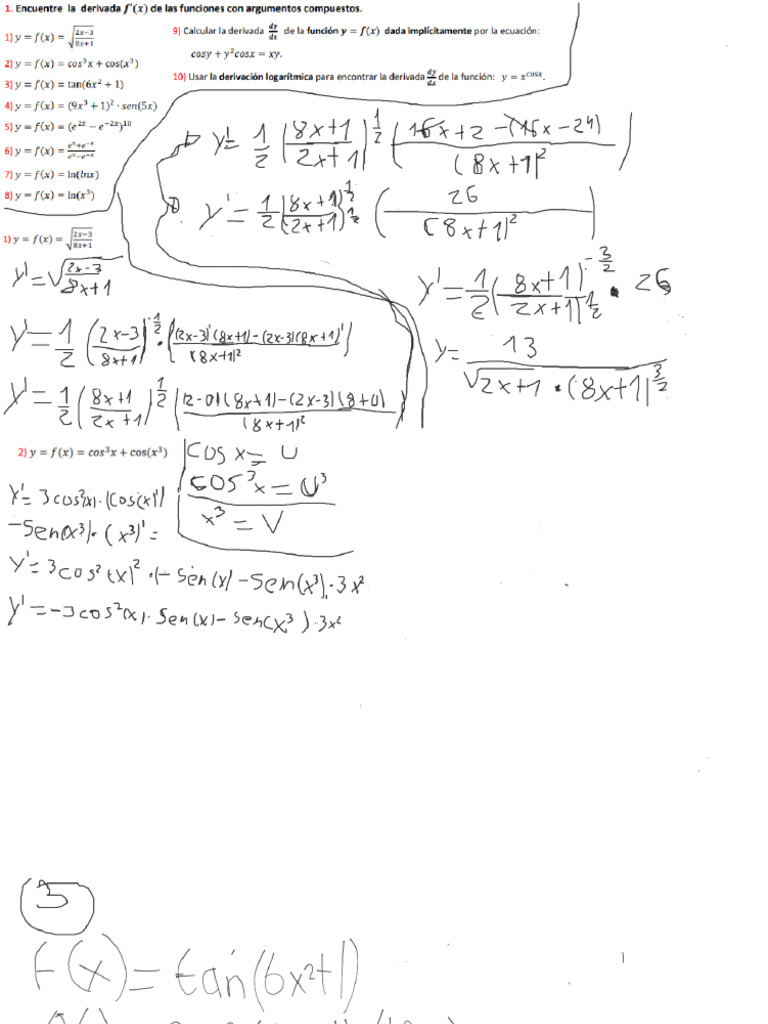 1. Encuentre la derivada f′(x) de las funciones con argumentos compuestos.
1) y = f(x) = √((2x−3)/(8x+1))
2) y = f(x) = cos³x + cos(x³)
3) y = f(x) = tan(6x² + 1)
4) y = f(x) = (9x³ + 1)² · sen(5x)
5) y = f(x) = (e²ˣ − e⁻²ˣ)¹⁰
6) y = f(x) = (eˣ+e⁻ˣ)/(eˣ−e⁻ˣ)
7) y = f(x) = ln(lnx)
8) y = f(x) = ln(x³)
9) Calcular la derivada dy/dx de la función y = f(x) dada implícitamente por la ecuación:
cosy + y²cosx = xy.
10) Usar la derivación logarítmica para encontrar la derivada dy/dx de la función: y = x^cosx.
y' = 1/2 (8x+1/2x+1)^1/2 (16x+2−(16x−24)/(8x+1)²)
y' = 1/2 (8x+1)^1/2/(2x+1)^1/2 (26/(8x+1)²)
y' = 1/2 (8x+1)^-3/2/(2x+1)^1/2 · 26
y = 13/√2x+1 · (8x+1)^3/2
1) y = f(x) = √((2x−3)/(8x+1))
y' = √(2x−3/8x+1)
y' = 1/2 (2x−3/8x+1)^-1/2 · ((2x−3)'(8x+1)−(2x−3)(8x+1)'/(8x+1)²)
y' = 1/2 (8x+1/2x+1)^1/2 ((2−0)(8x+1)−(2x−3)(8+0)/(8x+1)²)
2) y = f(x) = cos³x + cos(x³)
cos x = U
cos³x = U³
x³ = V
y' = 3cos²(x)·(cos(x)')
−sen(x³)·(x³)' =
y' = 3cos²(x)²·(−sen(x)−sen(x³)·3x²
y' = −3cos²(x)·sen(x)−sen(x³)·3x²
3
f(x) = tan(6x²+1)